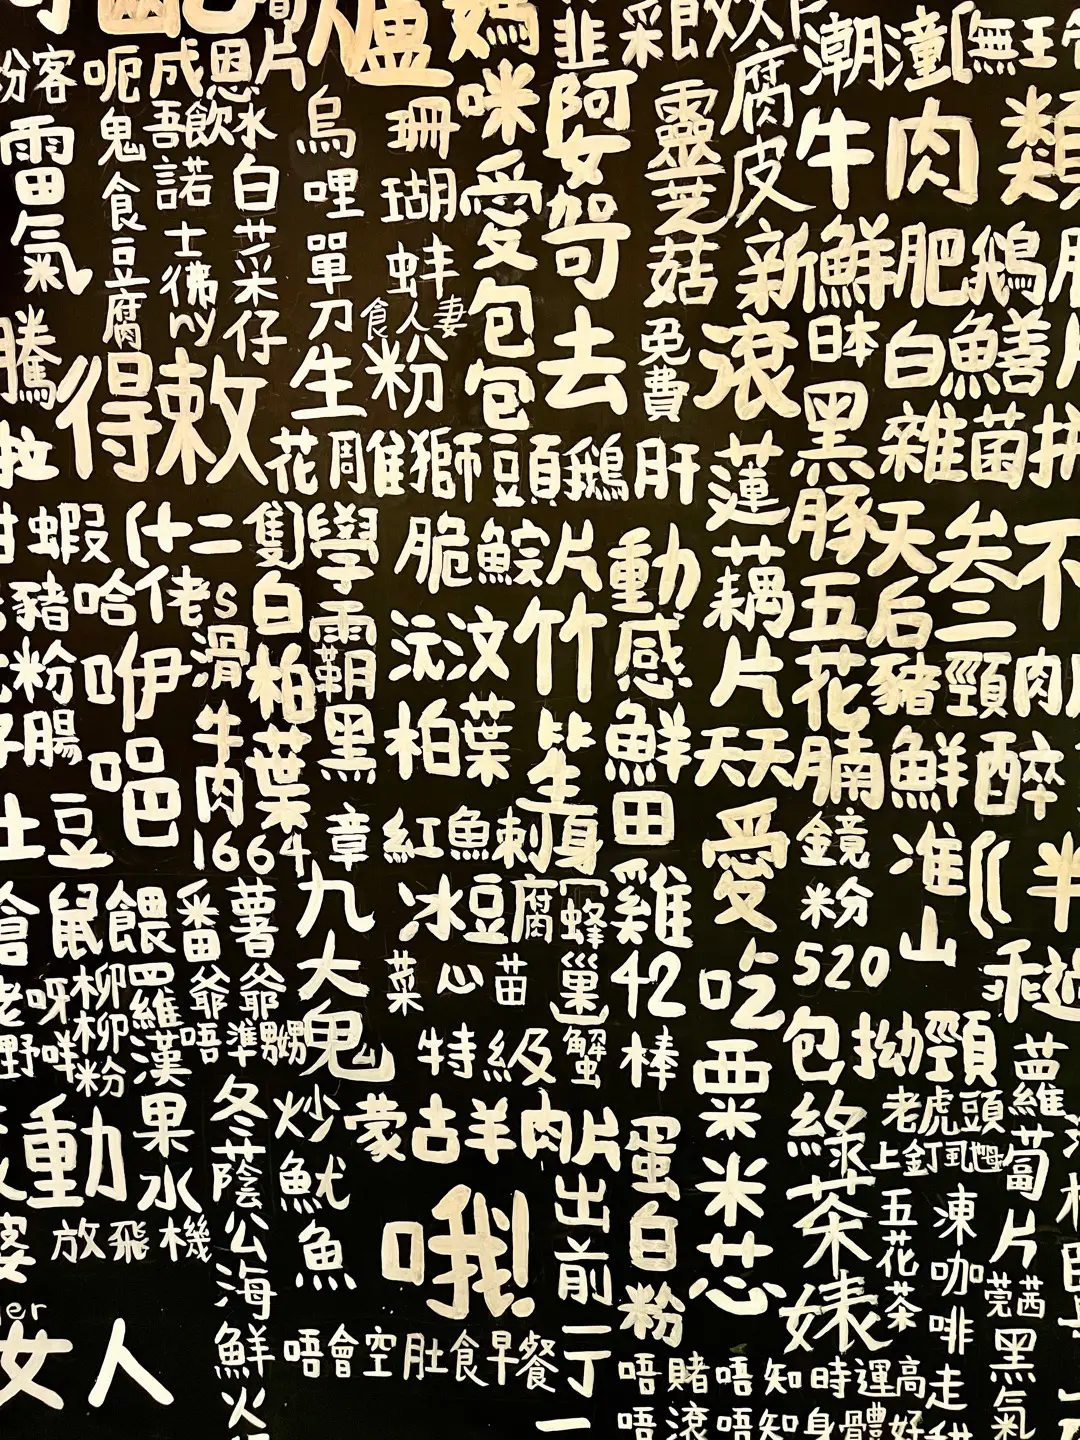 粉客
呃鬼食豆腐
成
恩
片
吾諾
飲水
士彿ny
白菜仔
烏哩單刀
生
珊瑚蚌
食人妻
粉
媽咪愛包包
韭
阿女
哿去
靈芝菇
免費
腐皮
潮
牛肉
無王
新鮮肥鵝
滾
日本黑豚
五花腩
白鱔
雜菌
雷氣
騰
得敕
花
周
隻
獅豆頭鵝肝
蝦
(十二
豬哈佬
S滑牛肉
粉腸
咿
吧
隻白柏葉
1664
學
霸
黑
章
九大鬼
脆鯇片
沅汶
竹笙
柏葉
紅魚刺身
冰豆腐
蜂巢
蟹
菜心苗
特級
動感鮮田雞
42
棒
蓮藕片
天天
愛吃
粟米芯
天后
豬頸肉
叁
不
鮮
醉
鏡
粉
520
准
山
半
乖
過
包拗頸
土豆
鼠餵
番薯
爺爺
老
呀
野
咩
柳柳粉
四維漢
果水
唔準嬲
動
放飛機
女人
冬蔭公海鮮火
炒魷魚
蒙古羊肉片
哦!
出前一丁
唔會空肚食早餐
蛋白粉
綠茶婊
老虎頭上釘虱乸
五花茶
凍咖啡走甜
蘿蔔片
芫茜
黑氣
唔賭唔知時運高
唔滾唔知身體好